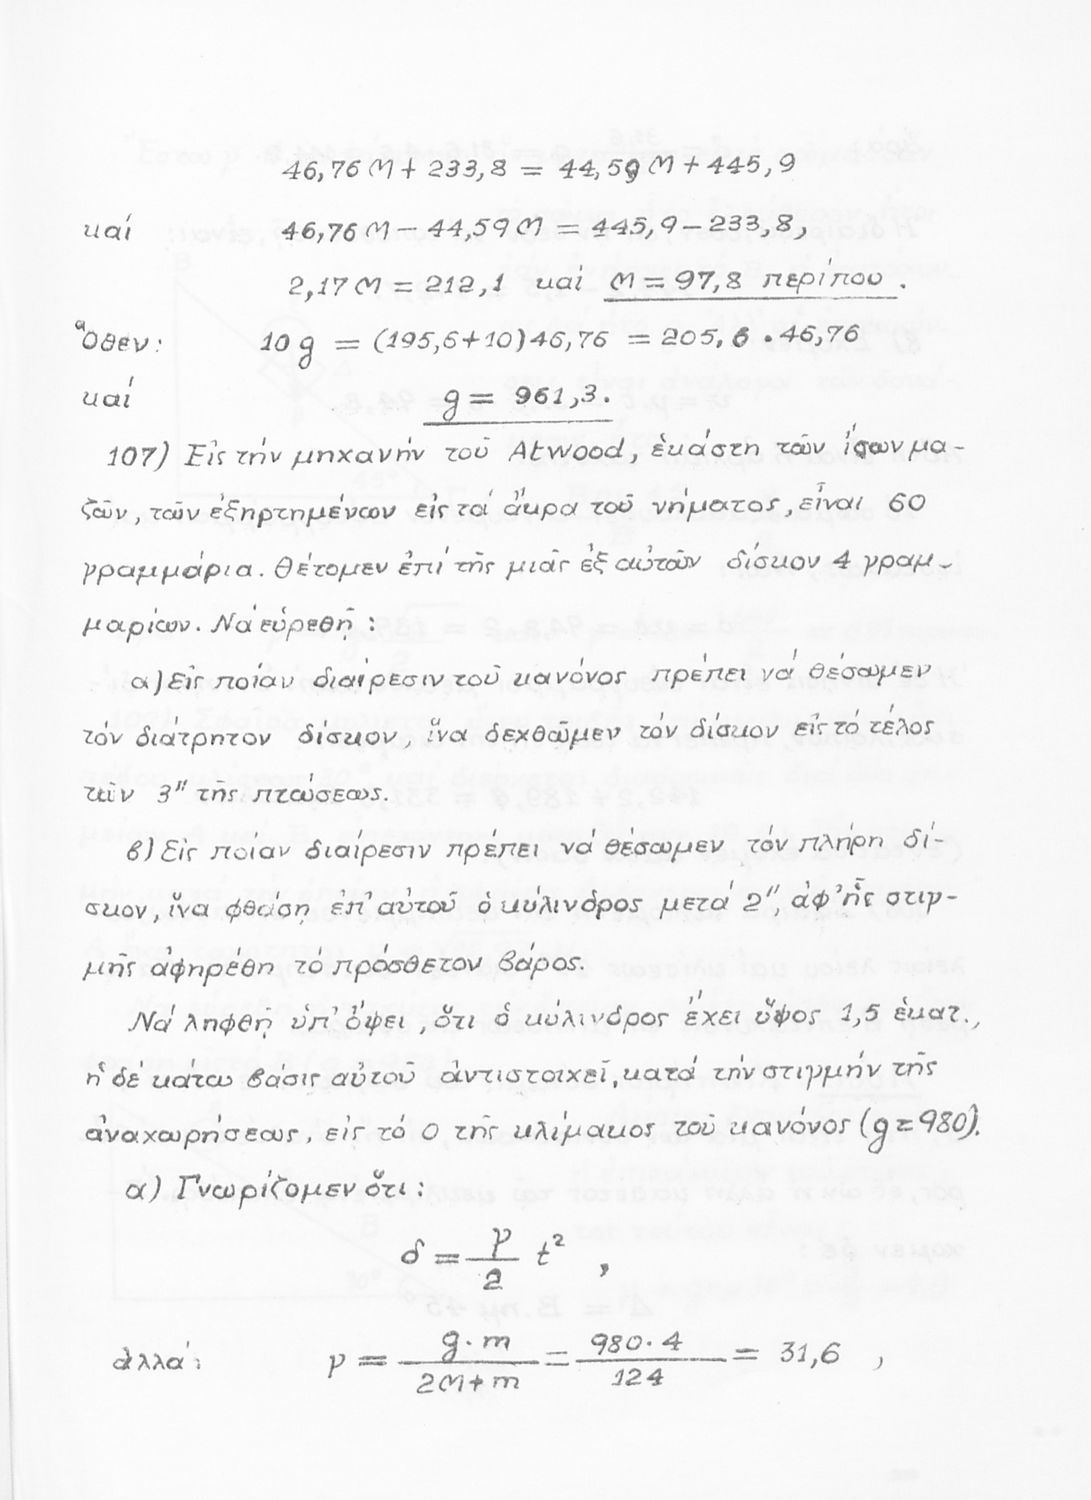 46,76 M + 233,8 = 44,59 M + 445,9
καί 46,76 M − 44,59 M = 445,9 − 233,8,
2,17 M = 212,1 καί M = 97,8 περίπου.
Ὅθεν: 10 g = (195,6+10) 46,76 = 205,6 . 46,76
καί g = 961,3.
107) Εἰς τήν μηχανήν τοῦ Atwood, ἑκάστη τῶν ἴσων μα-
ζῶν, τῶν ἐξηρτημένων εἰς τά ἄκρα τοῦ νήματος, εἶναι 60
γραμμάρια. Θέτομεν ἐπί τῆς μιᾶς ἐξ αὐτῶν δίσκον 4 γραμ-
μαρίων. Νά εὑρεθῇ:
α) Εἰς ποίαν διαίρεσιν τοῦ κανόνος πρέπει νά θέσωμεν
τόν διάτρητον δίσκον, ἵνα δεχθῶμεν τόν δίσκον εἰς τό τέλος
τῶν 3″ τῆς πτώσεως.
β) Εἰς ποίαν διαίρεσιν πρέπει νά θέσωμεν τόν πλήρη δί-
σκον, ἵνα φθάσῃ ἐπ' αὐτοῦ ὁ κύλινδρος μετά 2″, ἀφ' ἧς στιγ-
μῆς ἀφηρέθη τό πρόσθετον βάρος.
Νά ληφθῇ ὑπ' ὄψει, ὅτι ὁ κύλινδρος ἔχει ὕψος 1,5 ἑκατ.,
ἡ δέ κάτω βάσις αὐτοῦ ἀντιστοιχεῖ, κατά τήν στιγμήν τῆς
ἀναχωρήσεως, εἰς τό 0 τῆς κλίμακος τοῦ κανόνος (g = 980).
α) Γνωρίζομεν ὅτι:
δ = γ/2 t²,
ἀλλά: γ = g·m/2M+m = 980·4/124 = 31,6,